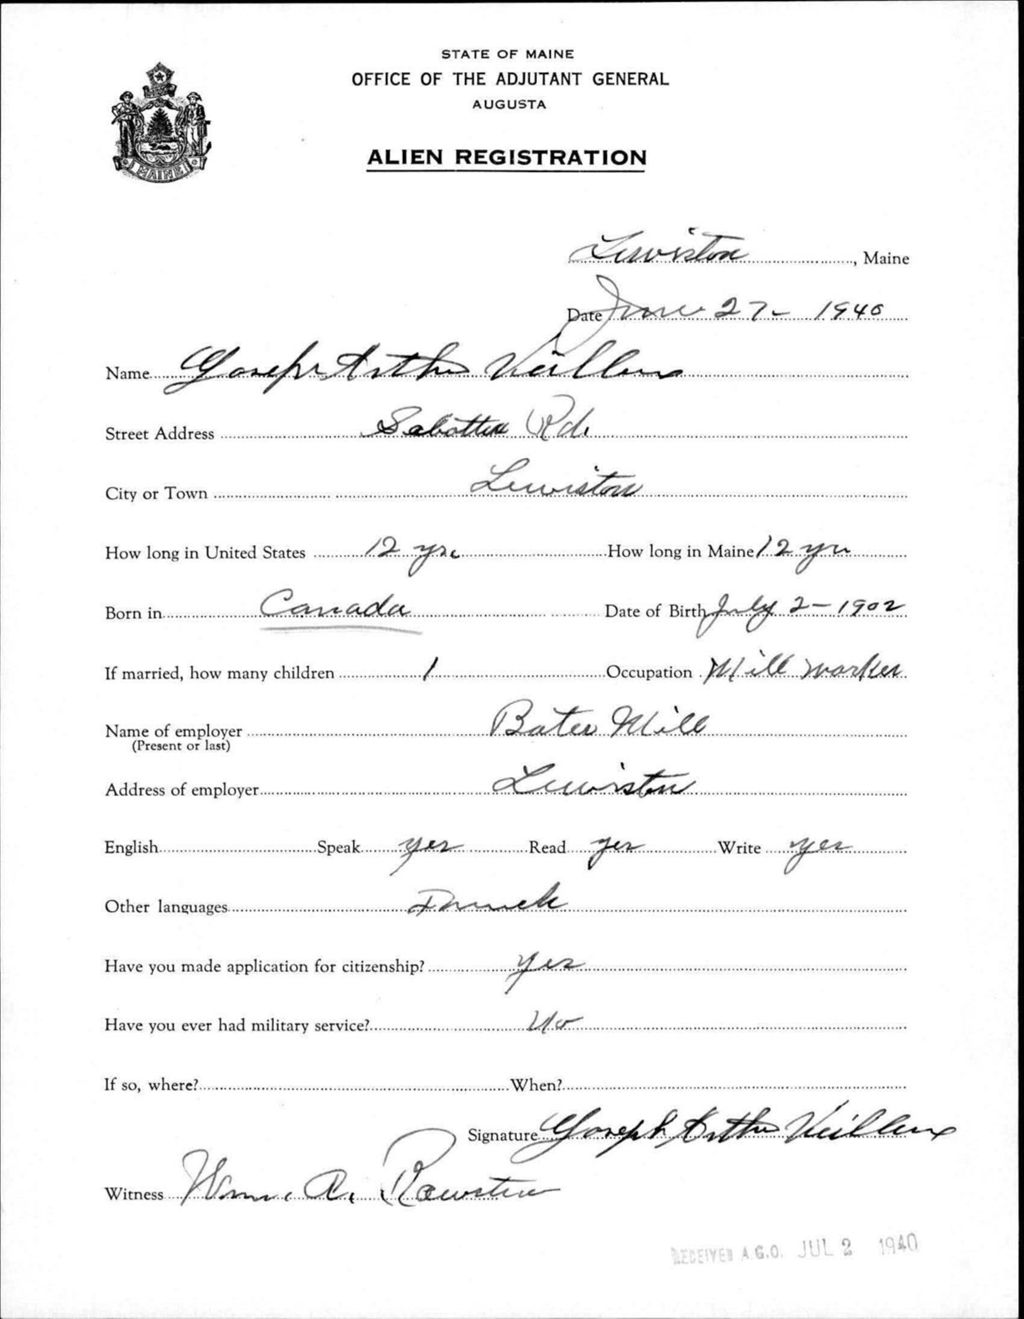 STATE OF MAINE
OFFICE OF THE ADJUTANT GENERAL
AUGUSTA
ALIEN REGISTRATION
MAINE
Lewiston, Maine
Date June 27- 1940
Name Joseph Arthur Veilleux
Street Address Sabattus Rd.
City or Town Lewiston
How long in United States 12 yrs How long in Maine 12 yrs
Born in Canada Date of Birth July 2-1902
If married, how many children 1 Occupation Mill worker
Name of employer Bates Mill
(Present or last)
Address of employer Lewiston
English Speak yes Read yes Write yes
Other languages French
Have you made application for citizenship? yes
Have you ever had military service? No
If so, where? When?
Signature Joseph Arthur Veilleux
Witness Wm. A.
RECEIVED A.G.O. JUL 2 1940